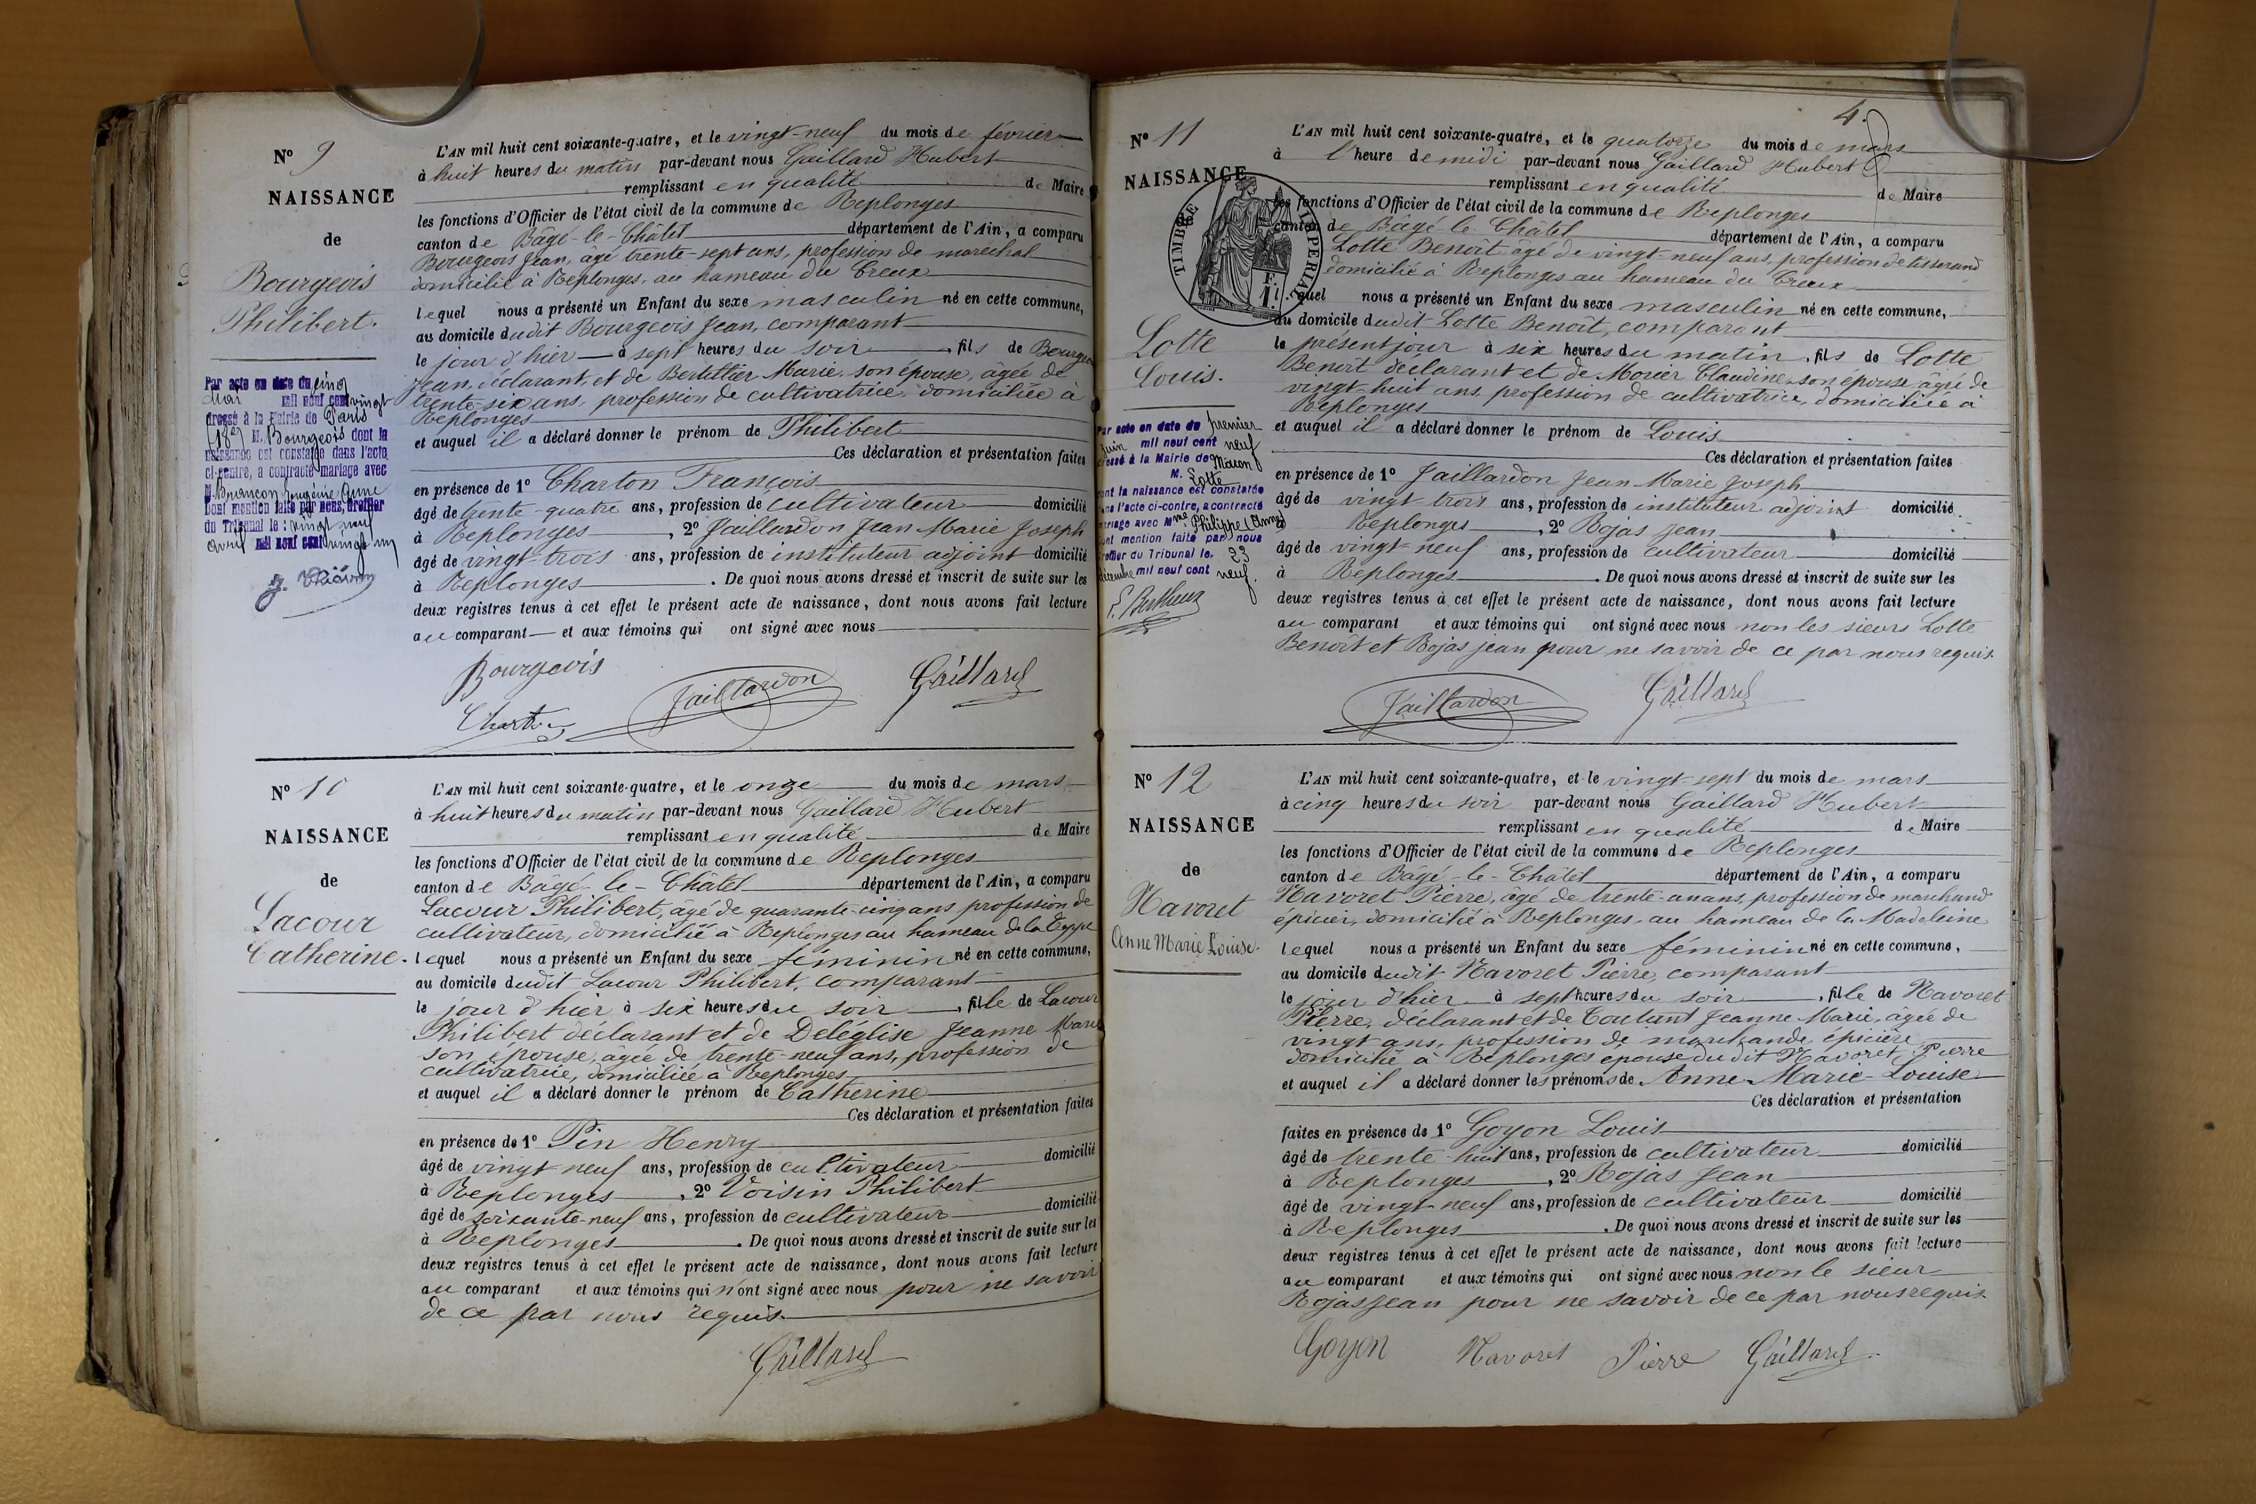 N° 9
NAISSANCE
de
Bourgeois
Philibert.
Par acte en date du cinq
Mai mil neuf cent vingt
dressé à la Mairie de Paris
(18e) M. Bourgeois dont la
naissance est constatée dans l'acte
ci-contre, a contracté mariage avec
M. Briançon Eugénie Anne
Dont mention faite par nous, Greffier
du Tribunal le : vingt neuf
avril mil neuf cent vingt un
L'AN mil huit cent soixante-quatre, et le vingt-neuf du mois de février
à huit heures du matin par-devant nous Gaillard Hubert
remplissant en qualité de Maire
les fonctions d'Officier de l'état civil de la commune de Replonges
canton de Bâgé-le-Châtel département de l'Ain, a comparu
Bourgeois Jean, âgé trente-sept ans, profession de maréchal
domicilié à Replonges, au hameau du Creux
lequel nous a présenté un Enfant du sexe masculin né en cette commune,
au domicile dudit Bourgeois Jean, comparant
le jour d'hier à sept heures du soir, fils de Bourgeois
Jean, déclarant, et de Berthillier Marie, son épouse, âgée de
trente-six ans, profession de cultivatrice, domiciliée à
Replonges
et auquel il a déclaré donner le prénom de Philibert
Ces déclaration et présentation faites
en présence de 1° Charton François
âgé de trente-quatre ans, profession de cultivateur domicilié
à Replonges, 2° Jaillardon Jean Marie Joseph
âgé de vingt-trois ans, profession de instituteur adjoint domicilié
à Replonges. De quoi nous avons dressé et inscrit de suite sur les
deux registres tenus à cet effet le présent acte de naissance, dont nous avons fait lecture
au comparant et aux témoins qui ont signé avec nous
Bourgeois
Charton Jaillardon Gaillard
N° 10
NAISSANCE
de
Lacour
Catherine.
L'AN mil huit cent soixante-quatre, et le onze du mois de mars
à huit heures du matin par-devant nous Gaillard Hubert
remplissant en qualité de Maire
les fonctions d'Officier de l'état civil de la commune de Replonges
canton de Bâgé-le-Châtel département de l'Ain, a comparu
Lacour Philibert, âgé de quarante-cinq ans, profession de
cultivateur, domicilié à Replonges au hameau de la Teppe
lequel nous a présenté un Enfant du sexe féminin né en cette commune,
au domicile dudit Lacour Philibert, comparant
le jour d'hier à six heures du soir, fille de Lacour
Philibert déclarant et de Deléglise Jeanne Marie
son épouse, âgée de trente-neuf ans, profession de
cultivatrice, domiciliée à Replonges
et auquel il a déclaré donner le prénom de Catherine
Ces déclaration et présentation faites
en présence de 1° Pin Henry
âgé de vingt neuf ans, profession de cultivateur domicilié
à Replonges, 2° Voisin Philibert
âgé de soixante-neuf ans, profession de cultivateur domicilié
à Replonges. De quoi nous avons dressé et inscrit de suite sur les
deux registres tenus à cet effet le présent acte de naissance, dont nous avons fait lecture
au comparant et aux témoins qui n'ont signé avec nous pour ne savoir
de ce par nous requis.
Gaillard
4.
N° 11
NAISSANCE
TIMBRE IMPERIAL
1 F.
Lotte
Louis.
Par acte en date du premier
Juin mil neuf cent neuf
dressé à la Mairie de Mâcon
M. Lotte
dont la naissance est constatée
dans l'acte ci-contre, a contracté
mariage avec Mme Philippe (Anne)
dont mention faite par nous
Greffier du Tribunal le. 23
décembre mil neuf cent neuf.
L'AN mil huit cent soixante-quatre, et le quatorze du mois de mars
à l'heure de midi par-devant nous Gaillard Hubert
remplissant en qualité de Maire
les fonctions d'Officier de l'état civil de la commune de Replonges
canton de Bâgé le Châtel département de l'Ain, a comparu
Lotte Benoît âgé de vingt-neuf ans, profession de tisserand
domicilié à Replonges au hameau du Creux
lequel nous a présenté un Enfant du sexe masculin né en cette commune,
au domicile dudit Lotte Benoît, comparant
le présent jour à six heures du matin, fils de Lotte
Benoît déclarant et de Morier Claudine son épouse âgée de
vingt-huit ans, profession de cultivatrice, domiciliée à
Replonges
et auquel il a déclaré donner le prénom de Louis
Ces déclaration et présentation faites
en présence de 1° Jaillardon Jean-Marie Joseph
âgé de vingt trois ans, profession de instituteur adjoint domicilié
à Replonges, 2° Rojas Jean
âgé de vingt-neuf ans, profession de cultivateur domicilié
à Replonges. De quoi nous avons dressé et inscrit de suite sur les
deux registres tenus à cet effet le présent acte de naissance, dont nous avons fait lecture
au comparant et aux témoins qui ont signé avec nous non les sieurs Lotte
Benoît et Rojas Jean pour ne savoir de ce par nous requis.
Jaillardon Gaillard
N° 12
NAISSANCE
de
Navoret
Anne Marie Louise.
L'AN mil huit cent soixante-quatre, et le vingt-sept du mois de mars
à cinq heures du soir par-devant nous Gaillard Hubert
remplissant en qualité de Maire
les fonctions d'Officier de l'état civil de la commune de Replonges
canton de Bâgé-le-Châtel département de l'Ain, a comparu
Navoret Pierre, âgé de trente-un ans, profession de marchand
épicier, domicilié à Replonges, au hameau de la Madeleine
lequel nous a présenté un Enfant du sexe féminin né en cette commune,
au domicile dudit Navoret Pierre, comparant
le jour d'hier à sept heures du soir, fille de Navoret
Pierre, déclarant et de Coulant Jeanne Marie, âgée de
vingt ans, profession de marchande épicière
domicilié à Replonges épouse dudit Navoret Pierre
et auquel il a déclaré donner les prénoms de Anne-Marie-Louise
Ces déclaration et présentation
faites en présence de 1° Goyon Louis
âgé de trente-huit ans, profession de cultivateur domicilié
à Replonges, 2° Rojas Jean
âgé de vingt-neuf ans, profession de cultivateur domicilié
à Replonges. De quoi nous avons dressé et inscrit de suite sur les
deux registres tenus à cet effet le présent acte de naissance, dont nous avons fait lecture
au comparant et aux témoins qui ont signé avec nous non le sieur
Rojas Jean pour ne savoir de ce par nous requis.
Goyon Navoret Pierre Gaillard